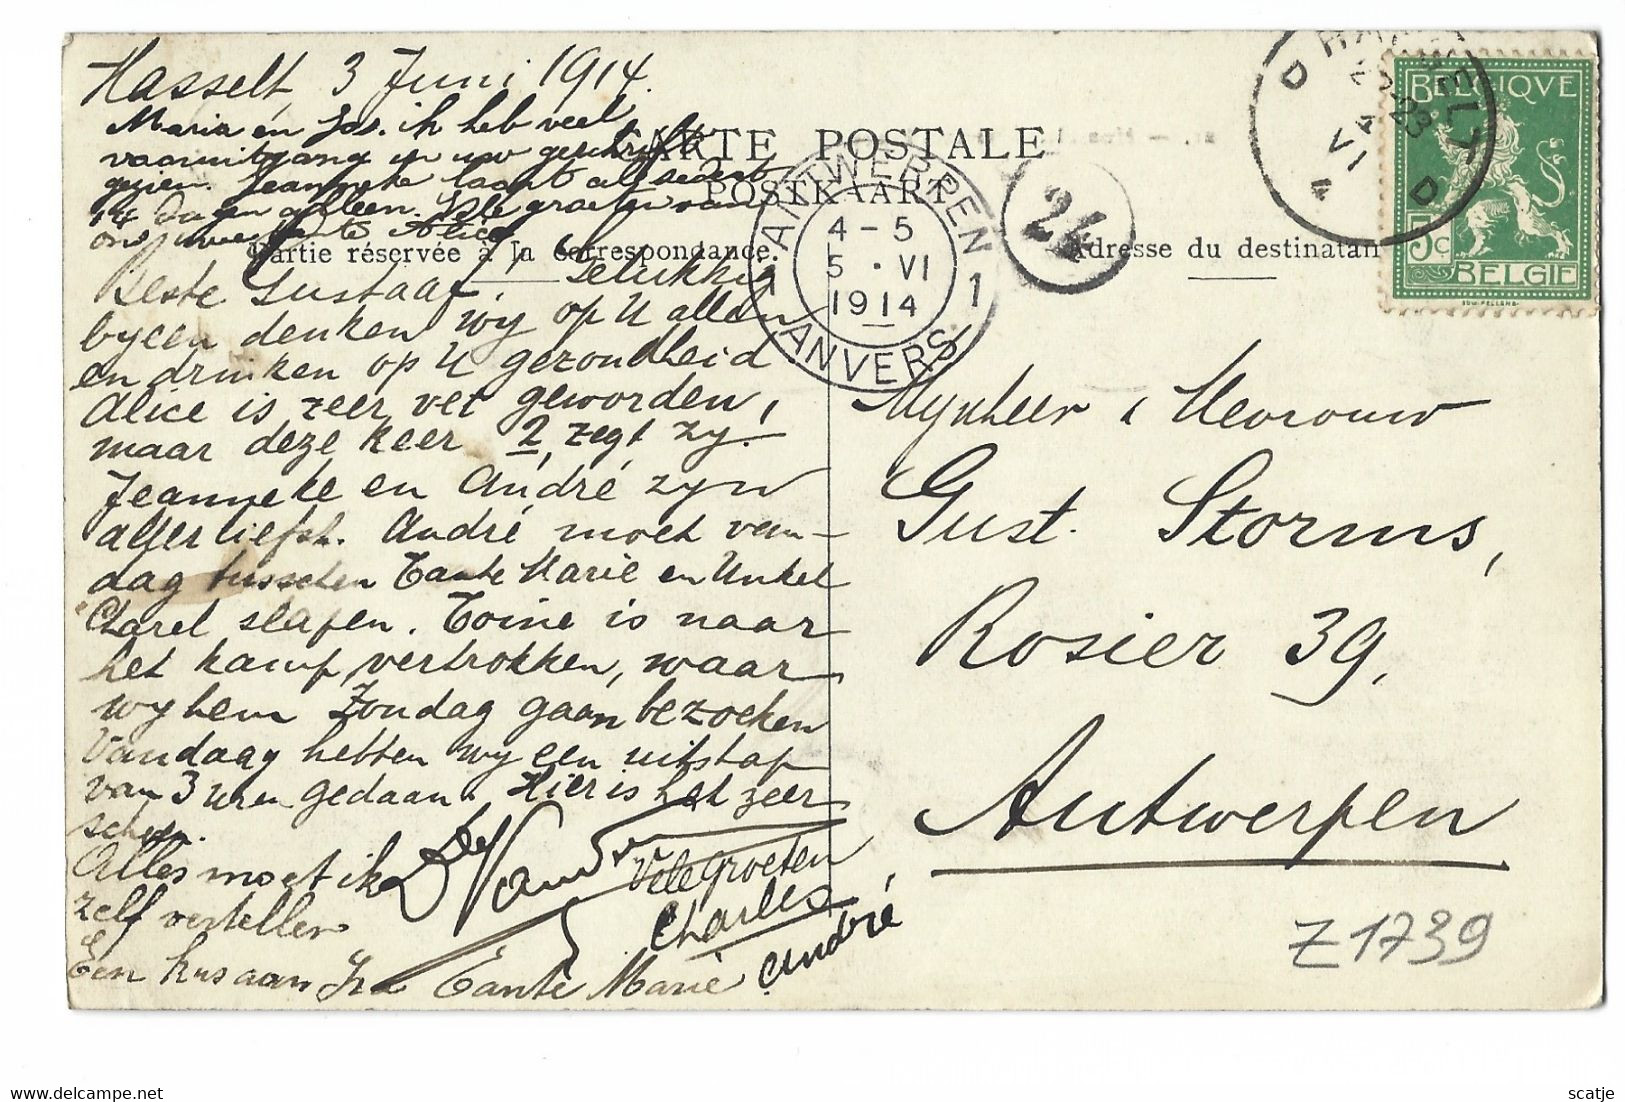 Hasselt, 3 Juni 1914.
Maria en Jos. ik heb veel
vooruitgang in uw geschrift
gezien. Jeanneke laat al sedert
14 dagen alleen. Vele groeten van
ons, uwe tante Alice
CARTE POSTALE
POSTKAART
Partie réservée à la correspondance.
Adresse du destinatan
Beste Gustaaf. Gelukkig
byeen denken wy op U allen
en drinken op U gezondheid
Alice is zeer vet geworden,
maar deze keer 2, zegt zy!
Jeanneke en André zyn
allerliefst. André moet van-
dag tusschen Tante Marie en Unkel
Charel slapen. Toine is naar
het kamp vertrokken, waar
wy hem Zondag gaan bezoeken
Vandaag hebben wy een uitstap
van 3 uren gedaan. Hier is het zeer
schoon.
Alles moet ik
zelf vertellen
Een kus aan
Vele groeten
Charles
Tante Marie André
Mynheer & Mevrouw
Gust. Storms,
Rosier 39,
Antwerpen
Z1739
ANTWERPEN
4-5
5 · VI
1914
1 ANVERS 1
24
BELGIQUE
5c
BELGIE
D
4 VI
D
scatje